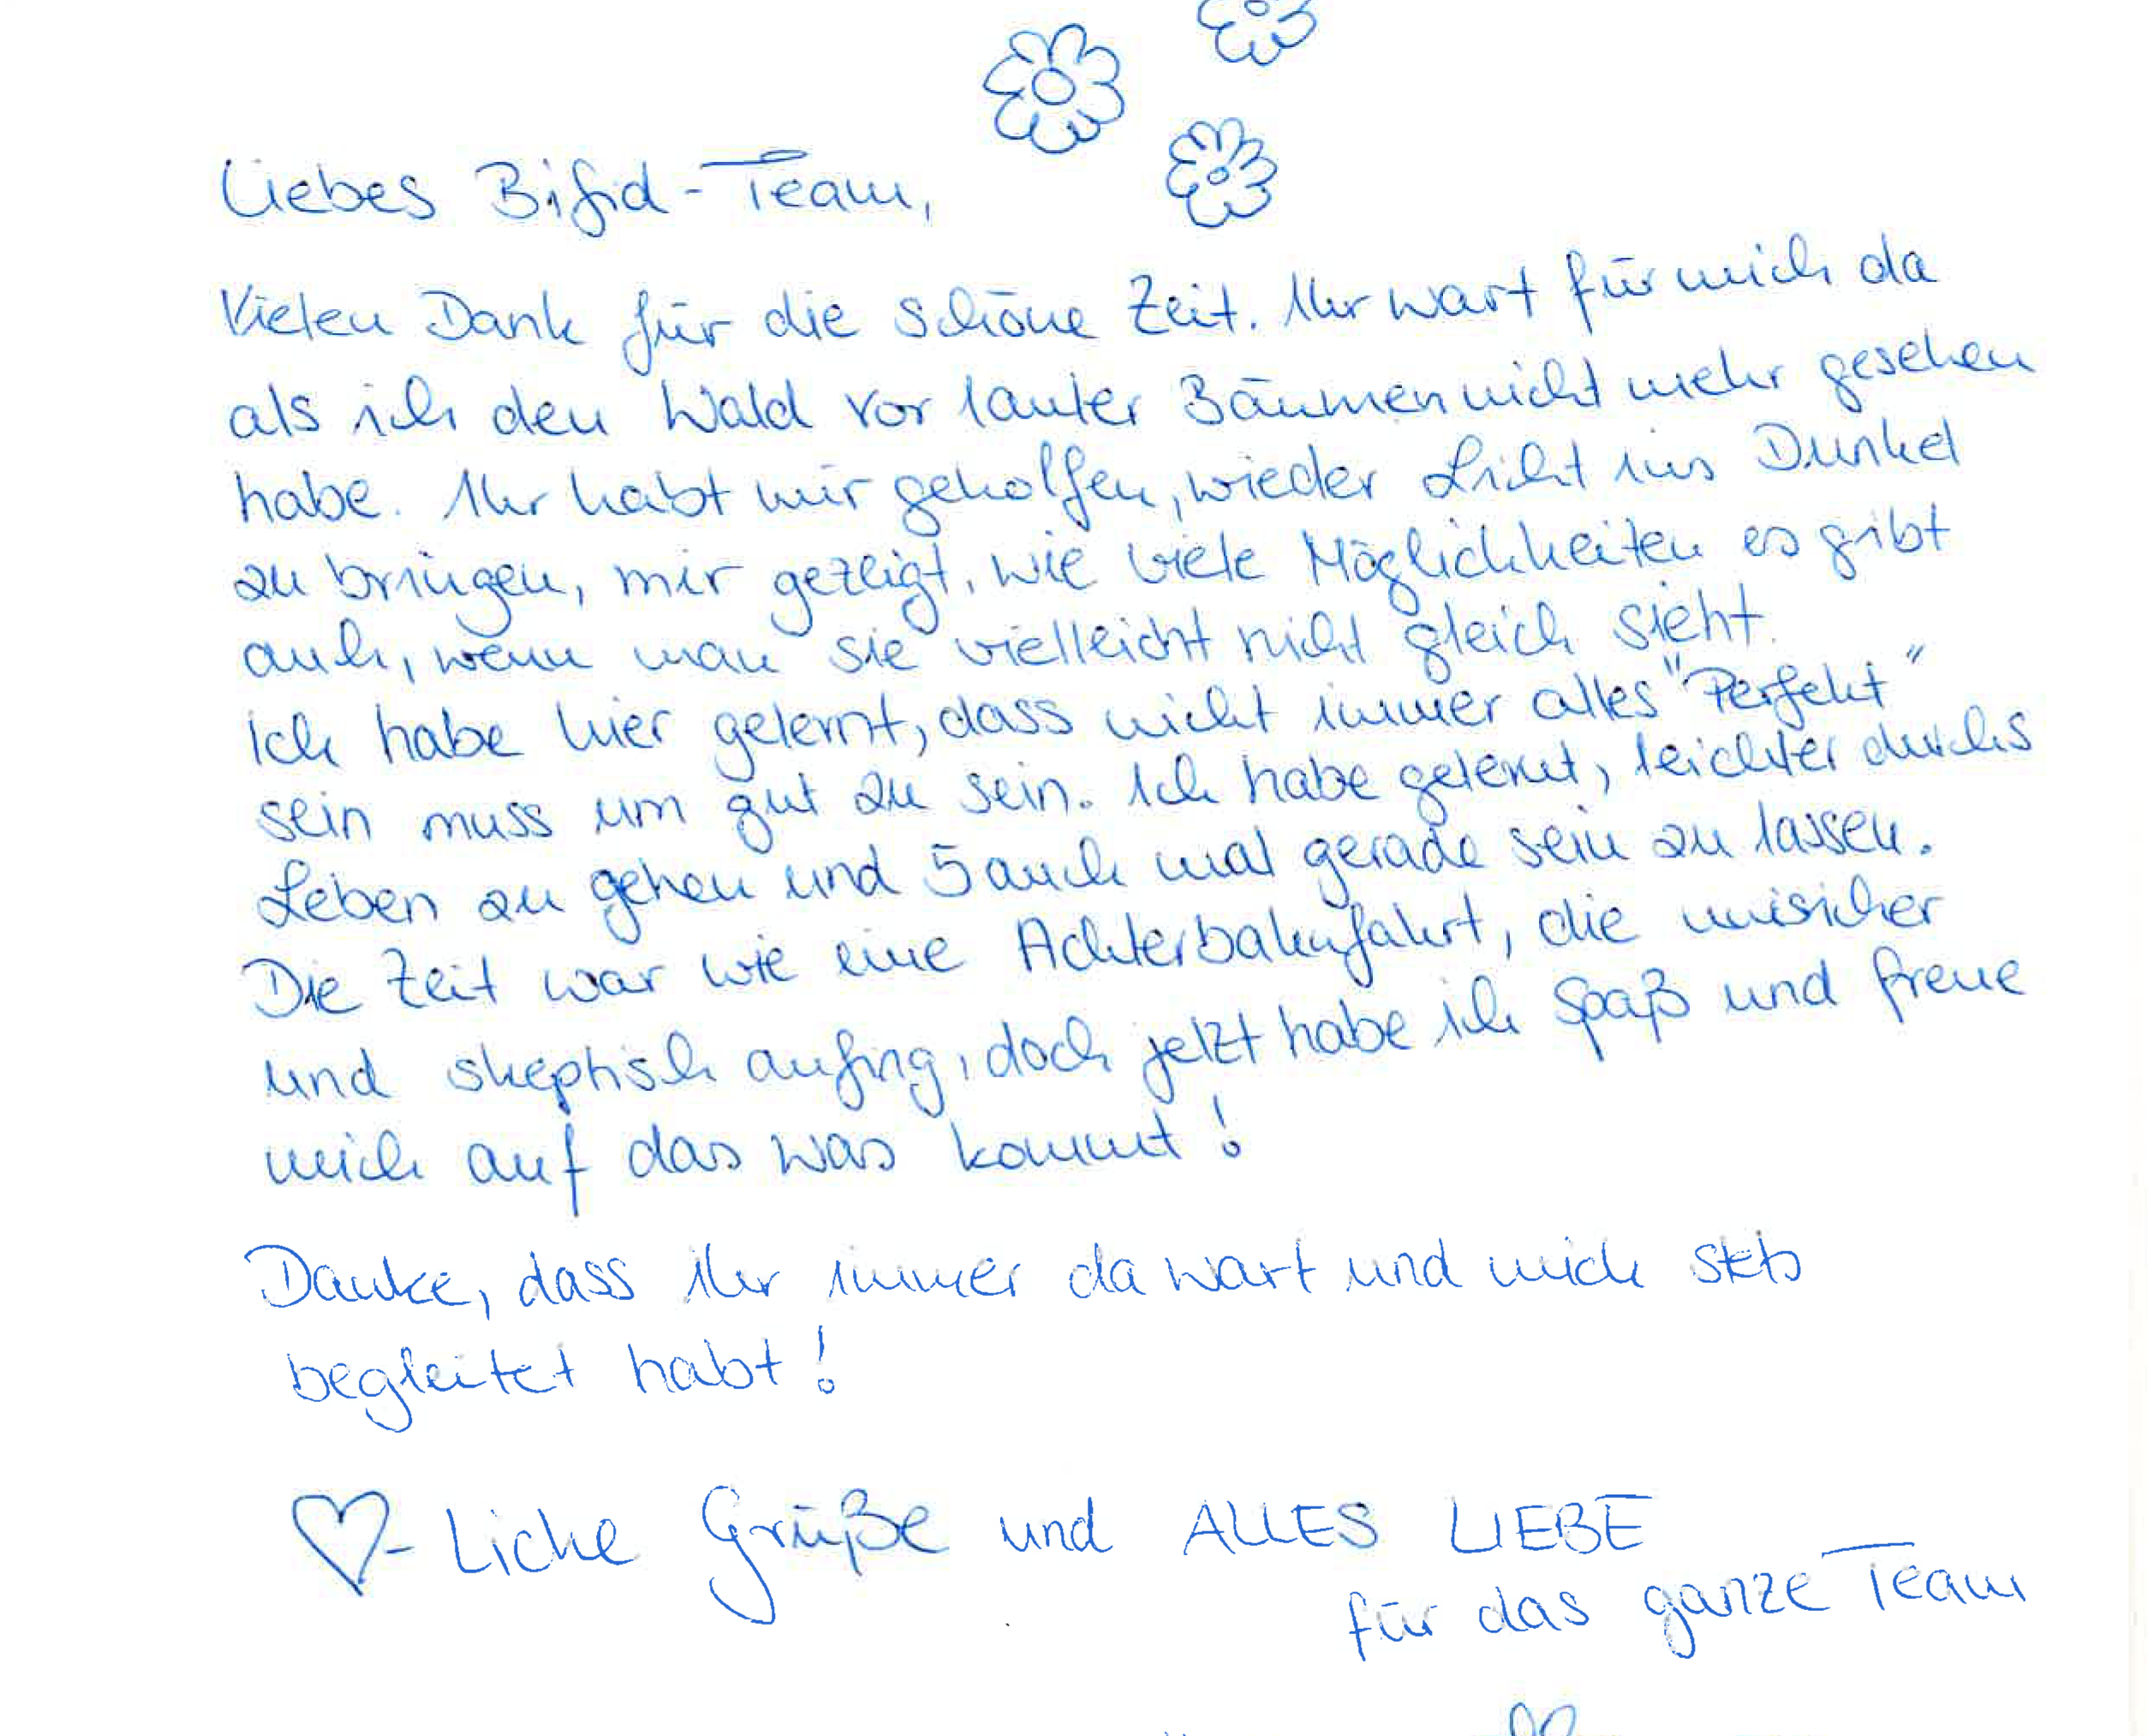 Liebes Bifid-Team,
Vielen Dank für die schöne Zeit. Ihr wart für mich da
als ich den Wald vor lauter Bäumen nicht mehr gesehen
habe. Ihr habt mir geholfen, wieder Licht ins Dunkel
zu bringen, mir gezeigt, wie viele Möglichkeiten es gibt
auch, wenn man sie vielleicht nicht gleich sieht.
Ich habe hier gelernt, dass nicht immer alles "Perfekt"
sein muss um gut zu sein. Ich habe gelernt, leichter durchs
Leben zu gehen und 5 auch mal gerade sein zu lassen.
Die Zeit war wie eine Achterbahnfahrt, die unsicher
und skeptisch anfing, doch jetzt habe ich Spaß und freue
mich auf das was kommt!
Danke, dass ihr immer da wart und mich stets
begleitet habt!
♡-Liche Grüße und ALLES LIEBE
für das ganze Team